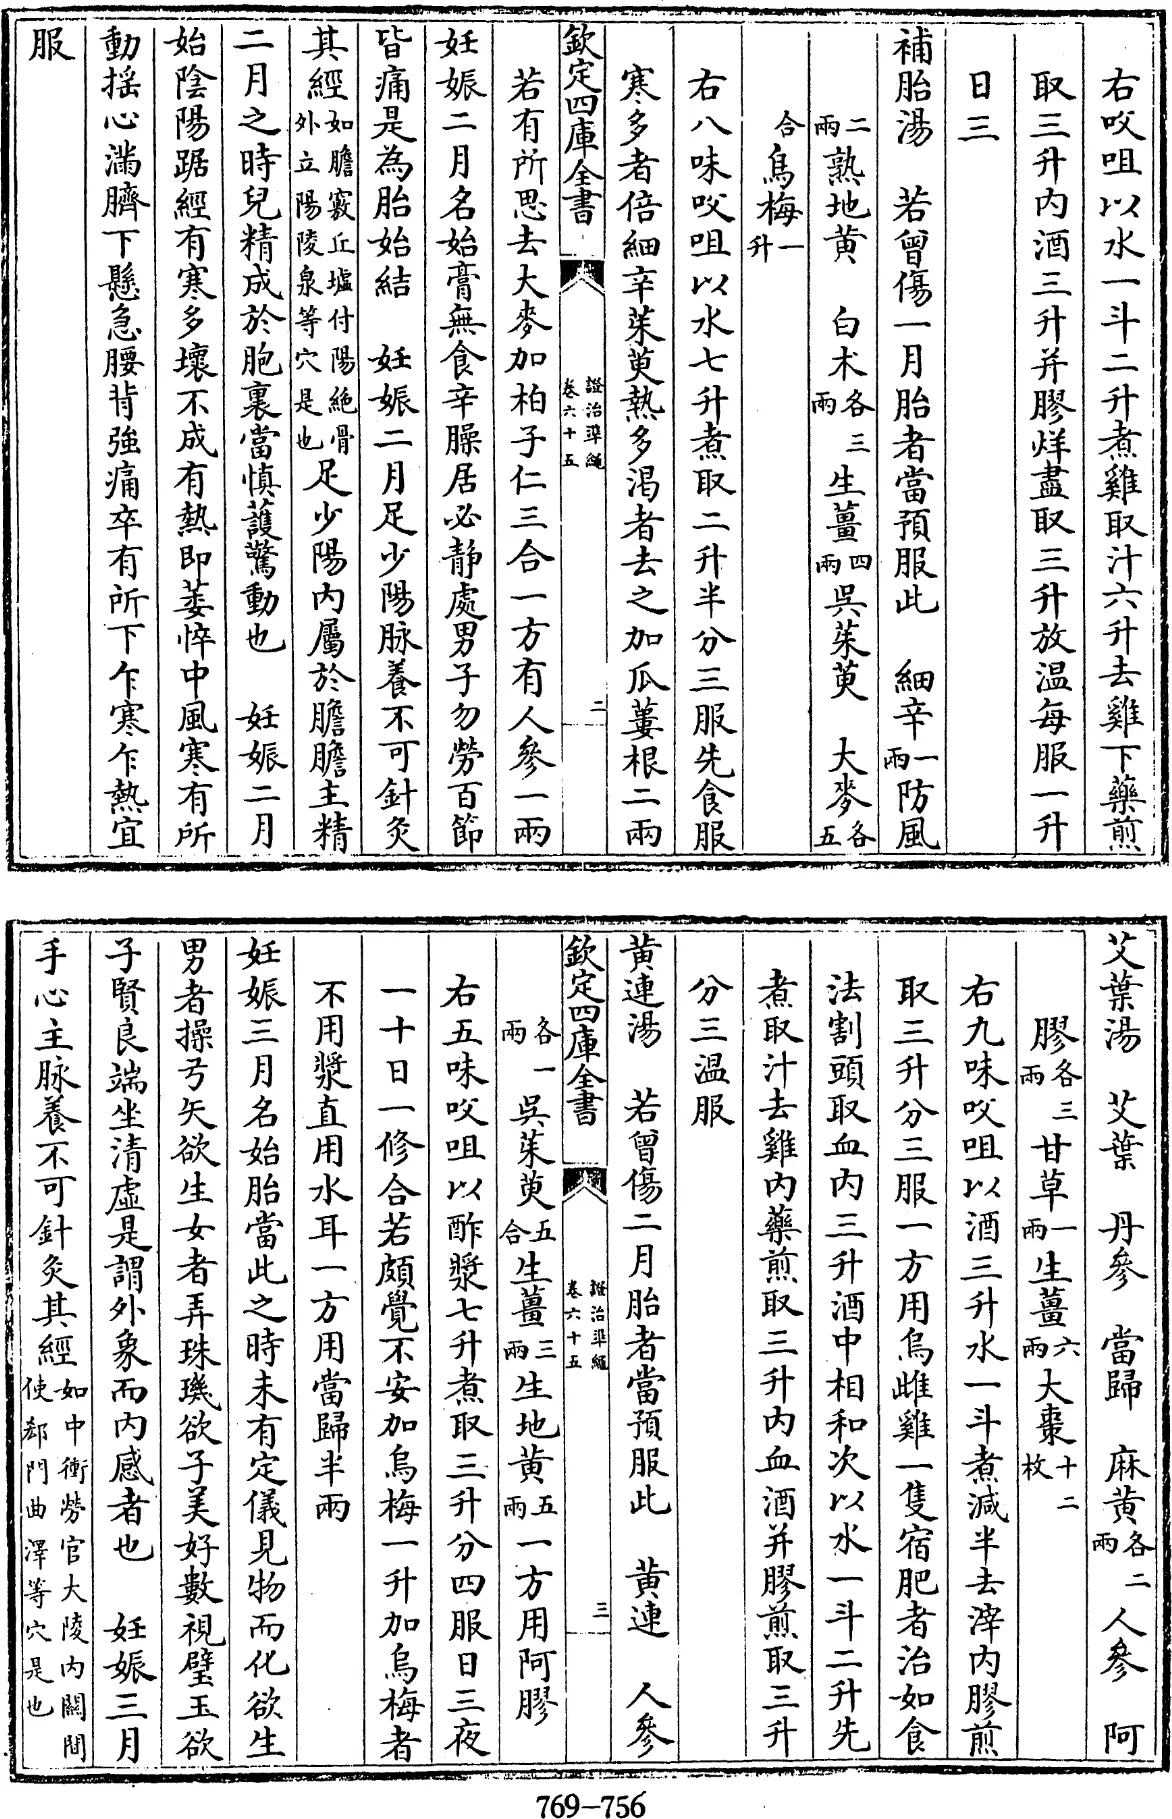 右㕮咀以水一斗二升煮雞取汁六升去雞下藥煎
取三升内酒三升并膠烊盡取三升放温每服一升
日三
補胎湯　若曾傷一月胎者當預服此　細辛一兩防風
二兩熟地黄　白术各三兩生薑四兩吳茱萸　大麥各五
合烏梅一升
右八味㕮咀以水七升煮取二升半分三服先食服
寒多者倍細辛茱萸熱多渴者去之加瓜蔞根二兩
欽定四庫全書　證治準繩卷六十五　二
若有所思去大麥加柏子仁三合一方有人參一兩
妊娠二月名始膏無食辛臊居必静處男子勿勞百節
皆痛是為胎始結　妊娠二月足少陽脉養不可針灸
其經如膽竅丘墟付陽絶骨外立陽陵泉等穴是也足少陽内屬於膽膽主精
二月之時兒精成於胞裏當慎護驚動也　妊娠二月
始陰陽踞經有寒多壞不成有熱即萎悴中風寒有所
動摇心滿臍下懸急腰背強痛卒有所下乍寒乍熱宜
服
艾葉湯　艾葉　丹參　當歸　麻黄各二兩人參　阿
膠各三兩甘草一兩生薑六兩大棗十二枚
右九味㕮咀以酒三升水一斗煮減半去滓内膠煎
取三升分三服一方用烏雌雞一隻宿肥者治如食
法割頭取血内三升酒中相和次以水一斗二升先
煮取汁去雞内藥煎取三升内血酒并膠煎取三升
分三温服
黄連湯　若曾傷二月胎者當預服此　黄連　人參
欽定四庫全書　證治準繩卷六十五　三
各一兩吳茱萸五合生薑三兩生地黄五兩一方用阿膠
右五味㕮咀以酢漿七升煮取三升分四服日三夜
一十日一修合若頗覺不安加烏梅一升加烏梅者
不用漿直用水耳一方用當歸半兩
妊娠三月名始胎當此之時未有定儀見物而化欲生
男者操弓矢欲生女者弄珠璣欲子美好數視璧玉欲
子賢良端坐清虛是謂外象而内感者也　妊娠三月
手心主脉養不可針灸其經如中衝勞宫大陵内關間使郄門曲澤等穴是也
769-756